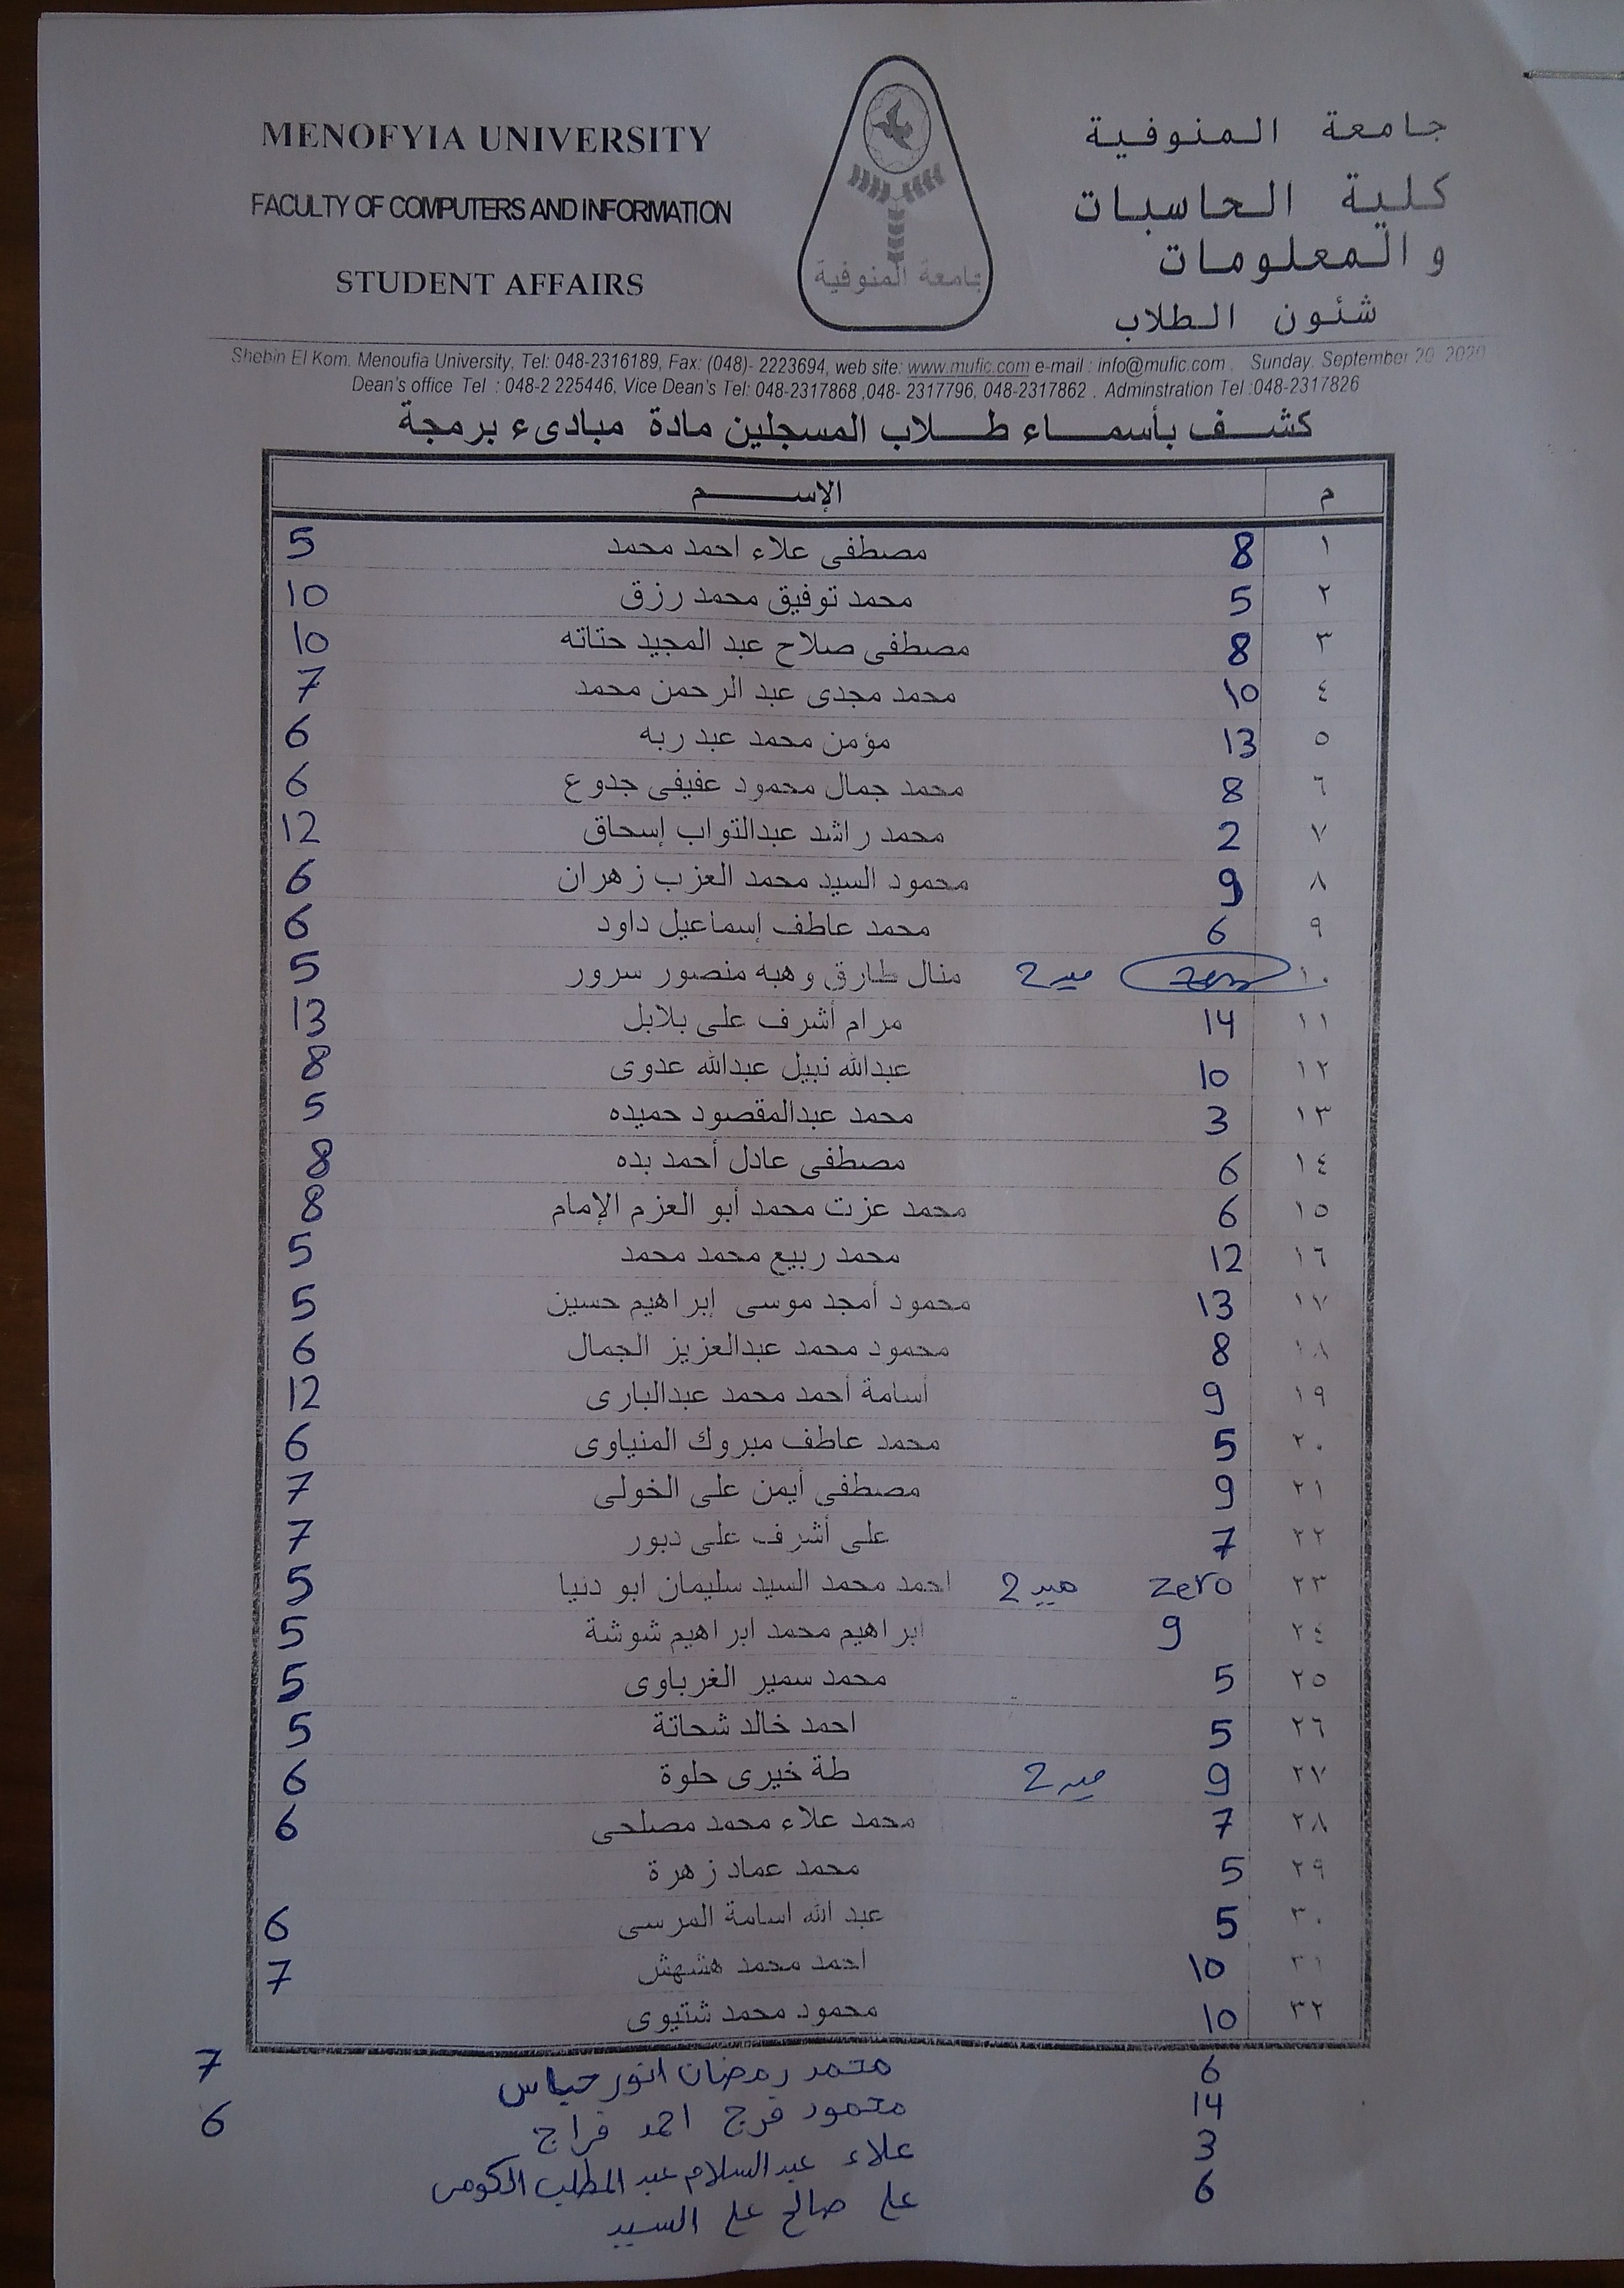 MENOFYIA UNIVERSITY
FACULTY OF COMPUTERS AND INFORMATION
STUDENT AFFAIRS
جامعة المنوفية
جامعة المنوفية
كلية الحاسبات
والمعلومات
شئون الطلاب
Shebin El Kom. Menoufia University, Tel: 048-2316189, Fax: (048)- 2223694, web site: www.mufic.com e-mail : info@mufic.com . Sunday, September 20, 2020
Dean's office Tel : 048-2 225446, Vice Dean's Tel: 048-2317868 ,048- 2317796, 048-2317862 . Adminstration Tel :048-2317826
كشف بأسماء طلاب المسجلين مادة مبادىء برمجة
م الإسم
١ 8 مصطفى علاء احمد محمد 5
٢ 5 محمد توفيق محمد رزق 10
٣ 8 مصطفى صلاح عبد المجيد حتاته 10
٤ 10 محمد مجدى عبد الرحمن محمد 7
٥ 13 مؤمن محمد عبد ربه 6
٦ 8 محمد جمال محمود عفيفى جدوع 6
٧ 2 محمد راشد عبدالتواب إسحاق 12
٨ 9 محمود السيد محمد العزب زهران 6
٩ 6 محمد عاطف إسماعيل داود 6
١٠ zero ميد 2 منال طارق وهبه منصور سرور 5
١١ 14 مرام أشرف على بلابل 13
١٢ 10 عبدالله نبيل عبدالله عدوى 8
١٣ 3 محمد عبدالمقصود حميده 5
١٤ 6 مصطفى عادل أحمد بده 8
١٥ 6 محمد عزت محمد أبو العزم الإمام 8
١٦ 12 محمد ربيع محمد محمد 5
١٧ 13 محمود أمجد موسى إبراهيم حسين 5
١٨ 8 محمود محمد عبدالعزيز الجمال 6
١٩ 9 أسامة أحمد محمد عبدالبارى 12
٢٠ 5 محمد عاطف مبروك المنياوى 6
٢١ 9 مصطفى أيمن على الخولى 7
٢٢ 7 على أشرف على دبور 7
٢٣ zero ميد 2 احمد محمد السيد سليمان ابو دنيا 5
٢٤ 9 ابراهيم محمد ابراهيم شوشة 5
٢٥ 5 محمد سمير الغرباوى 5
٢٦ 5 احمد خالد شحاتة 5
٢٧ 9 ميد 2 طة خيرى حلوة 6
٢٨ 7 محمد علاء محمد مصلحى 6
٢٩ 5 محمد عماد زهرة
٣٠ 5 عبد الله اسامة المرسى 6
٣١ 10 احمد محمد هشهش 7
٣٢ 10 محمود محمد شتيوى
6 محمد رمضان انور 7
14 محمود فرج احمد فراج 6
3 علاء عبد السلام عبد المطلب الكومى
6 على صالح على السيد